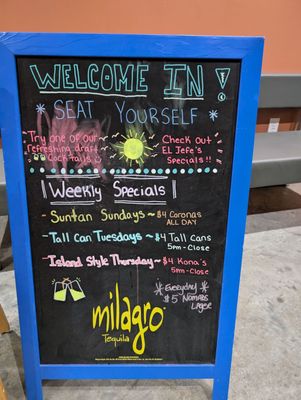 WELCOME IN
SEAT YOURSELF
Try one of our
refreshing draft
Cocktails
Check out
EL Jefe's
Specials!!
Weekly Specials
Suntan Sundays ~ $4 Coronas
ALL DAY
Tall Can Tuesdays ~ $4 Tall Cans
5pm-Close
Island Style Thursday ~ $4 Kona's
5pm-Close
Everyday
$5
Lager
milagro
Tequila